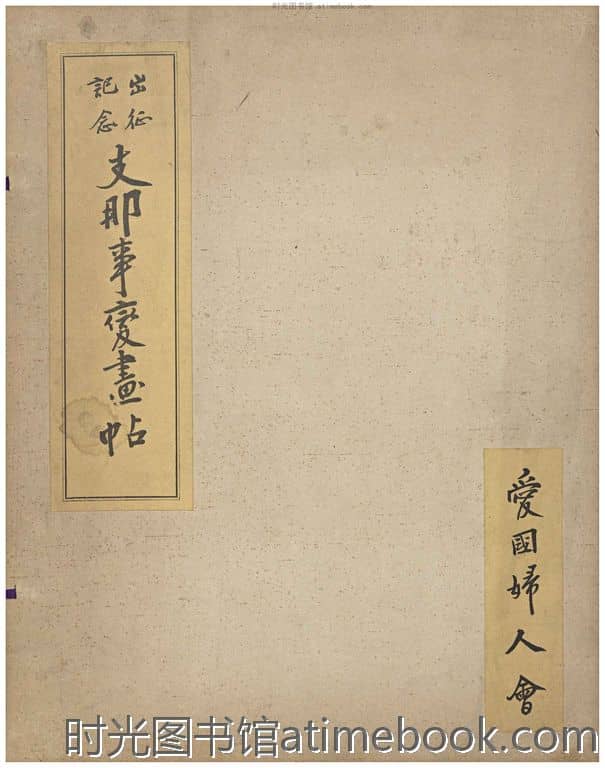 时光图书馆 atimebook.com
出征
記念
支那事變畫帖
愛國婦人會
时光图书馆atimebook.com